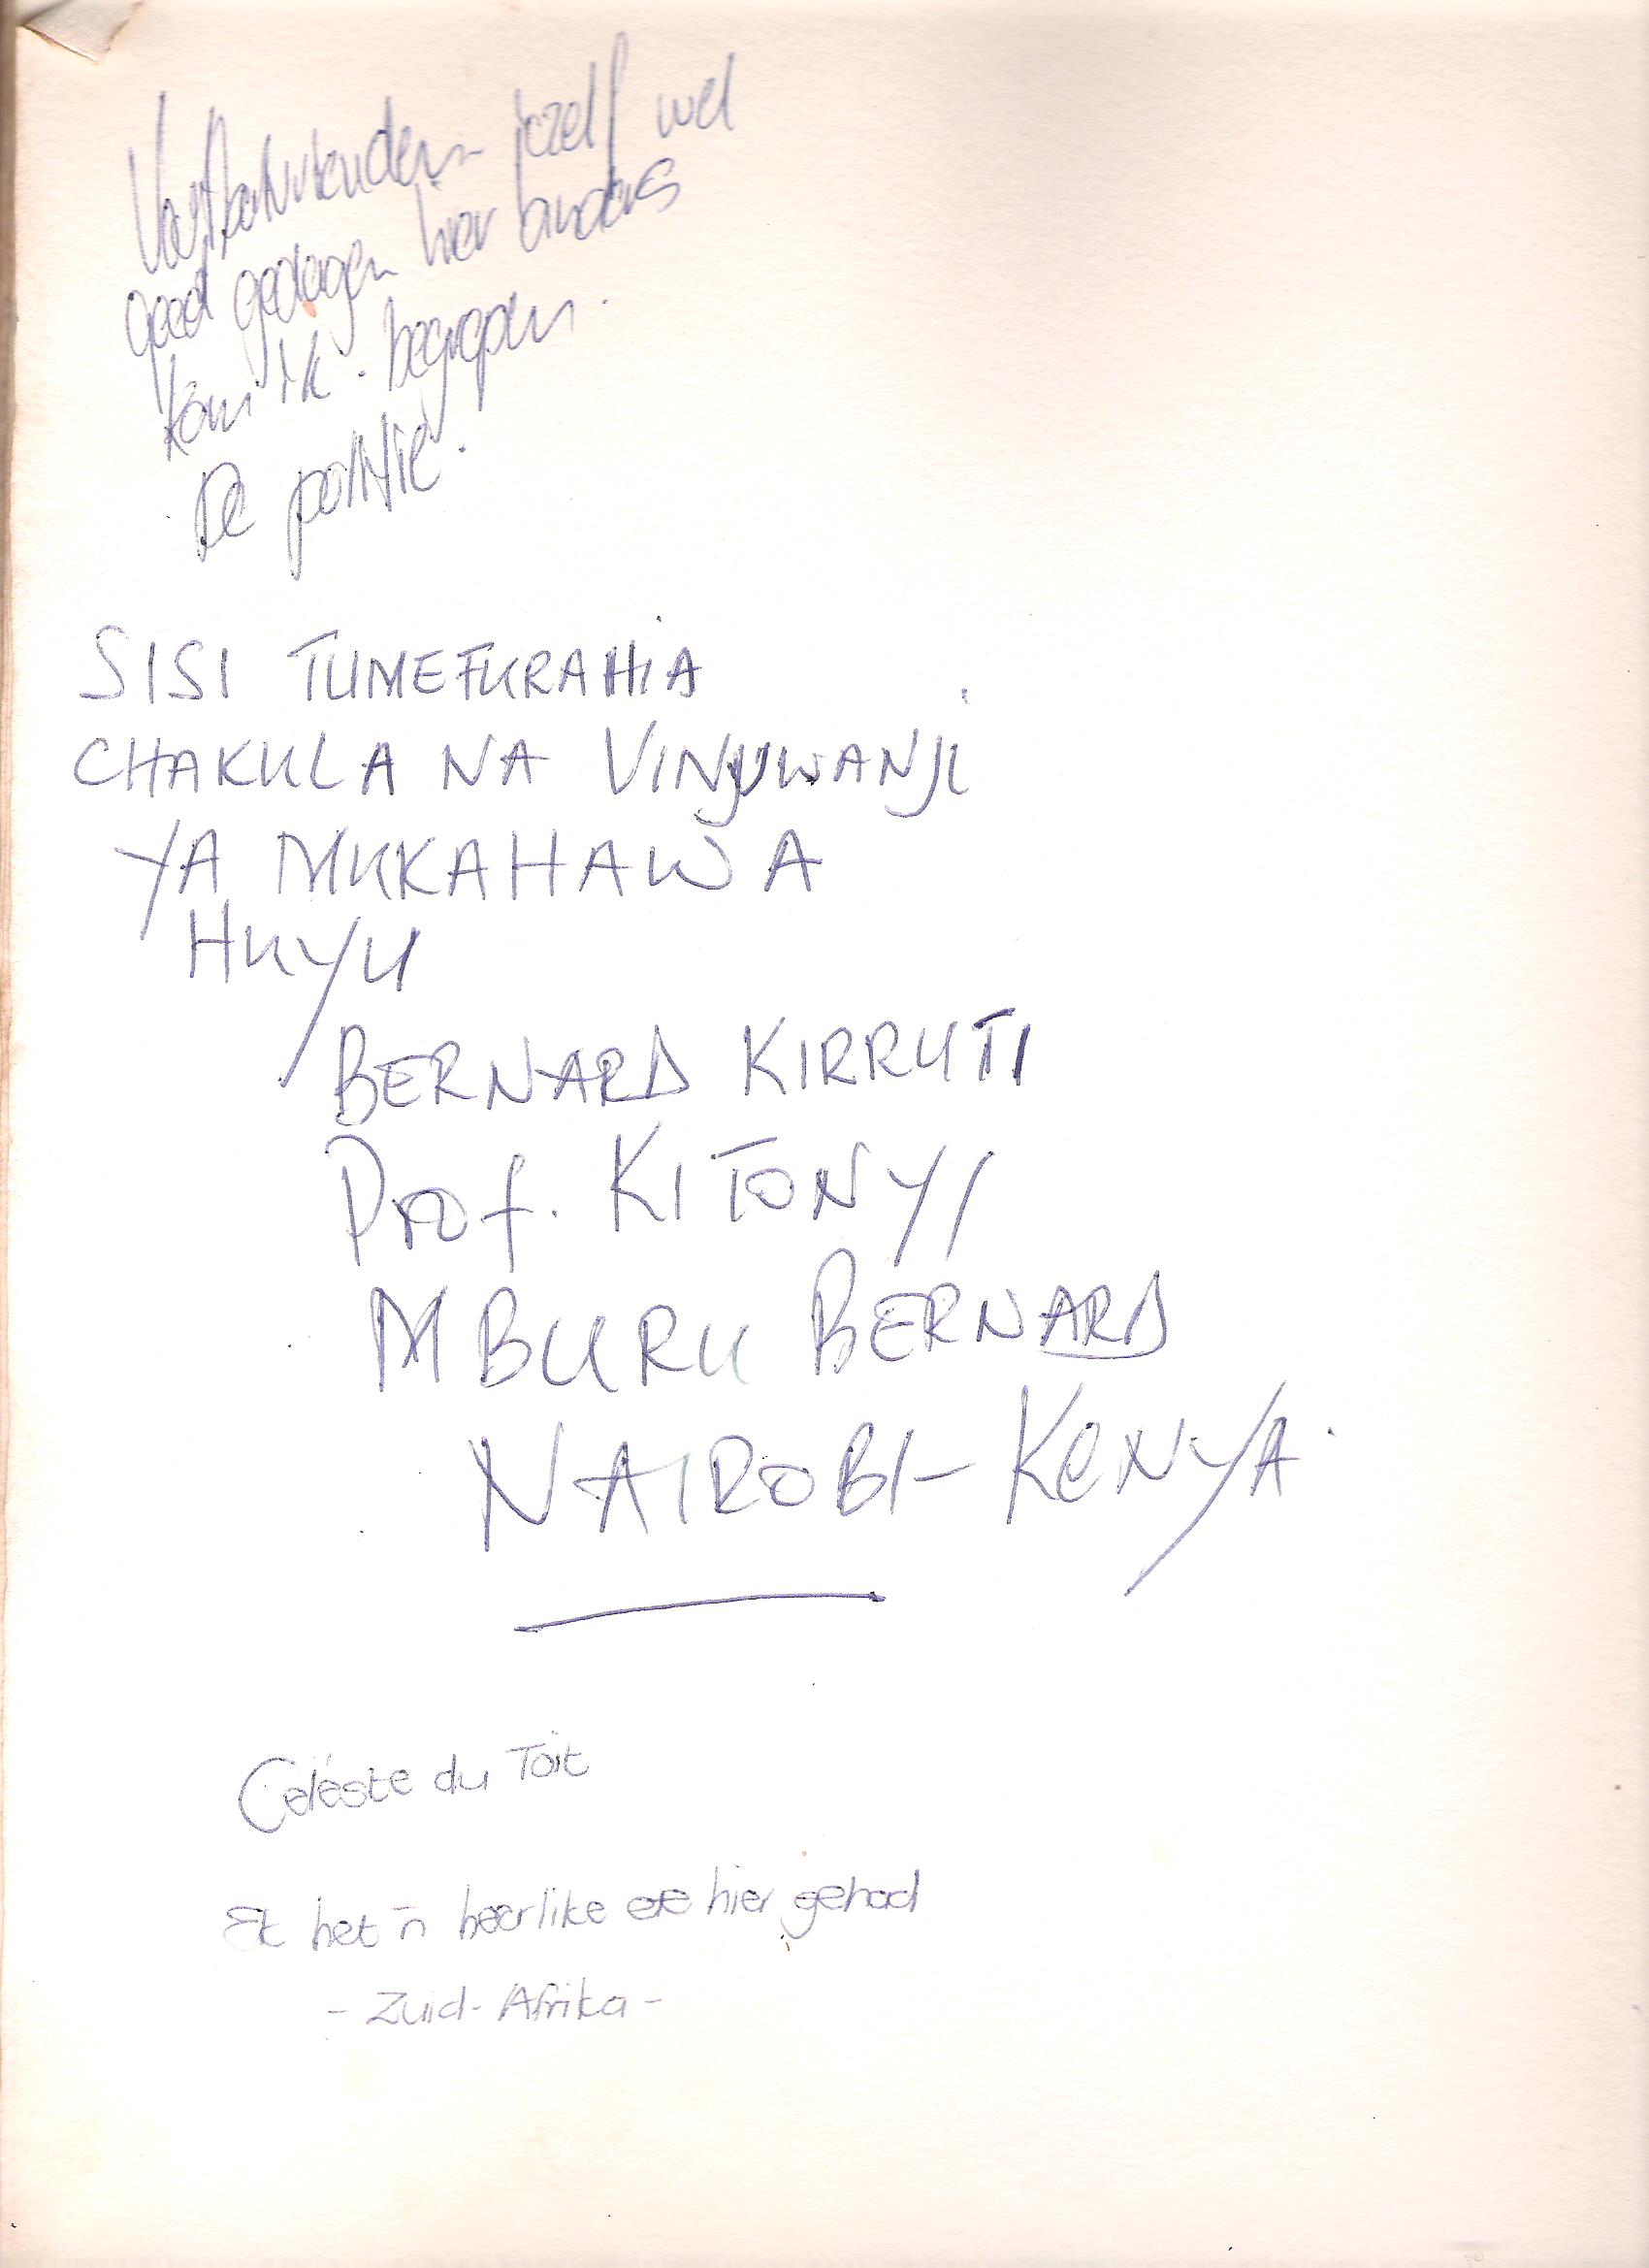 jezelf wel
goed gedragen hier anders
kom ik. begrepen.
De politie.
SISI TUMEFURAHIA
CHAKULA NA VINJUWANJI
YA MUKAHAWA
HUYU
BERNARD KIRRUTI
Prof. KITONYI
MBURU BERNARD
NAIROBI - KENYA.
Celéste du Toit
Ek het 'n heerlike ete hier gehad
- Zuid-Afrika -